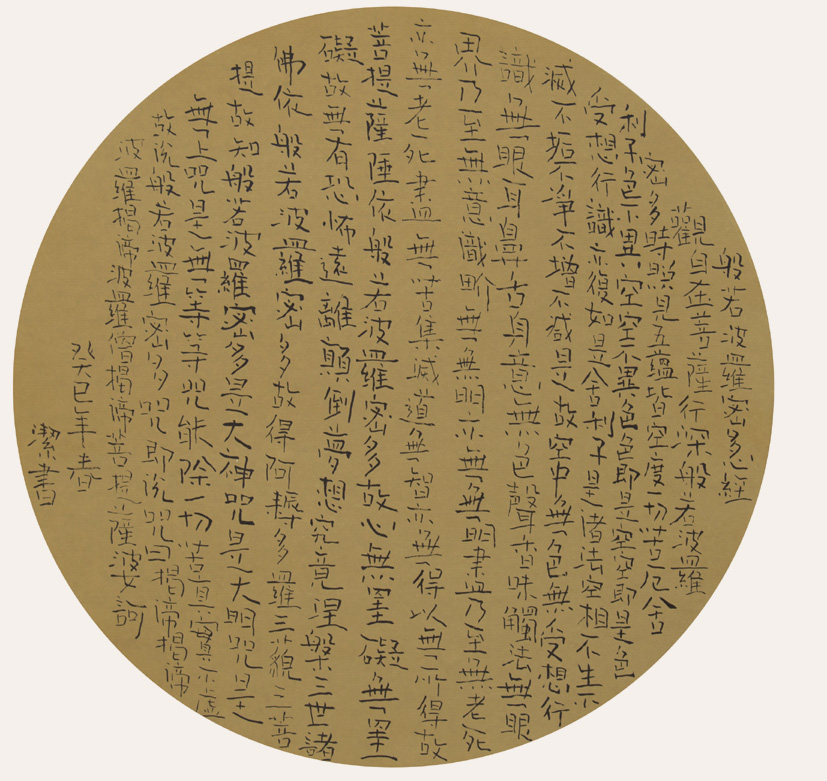 般若波羅密多心經
觀自在菩薩行深般若波羅
密多時照見五蘊皆空度一切苦厄舍
利子色不異空空不異色色即是空空即是色
受想行識亦復如是舍利子是諸法空相不生不
滅不垢不淨不增不減是故空中無色無受想行
識無眼耳鼻舌身意無色聲香味觸法無眼
界乃至無意識界無無明亦無無明盡乃至無老死
亦無老死盡無苦集滅道無智亦無得以無所得故
菩提薩埵依般若波羅密多故心無罣礙無罣
礙故無有恐怖遠離顛倒夢想究竟涅槃三世諸
佛依般若波羅密多故得阿耨多羅三藐三菩
提故知般若波羅密多是大神咒是大明咒是
無上咒是無等等咒能除一切苦真實不虛
故說般若波羅密多咒即說咒曰揭諦揭諦
波羅揭諦波羅僧揭諦菩提薩婆訶
癸巳年春
潔書